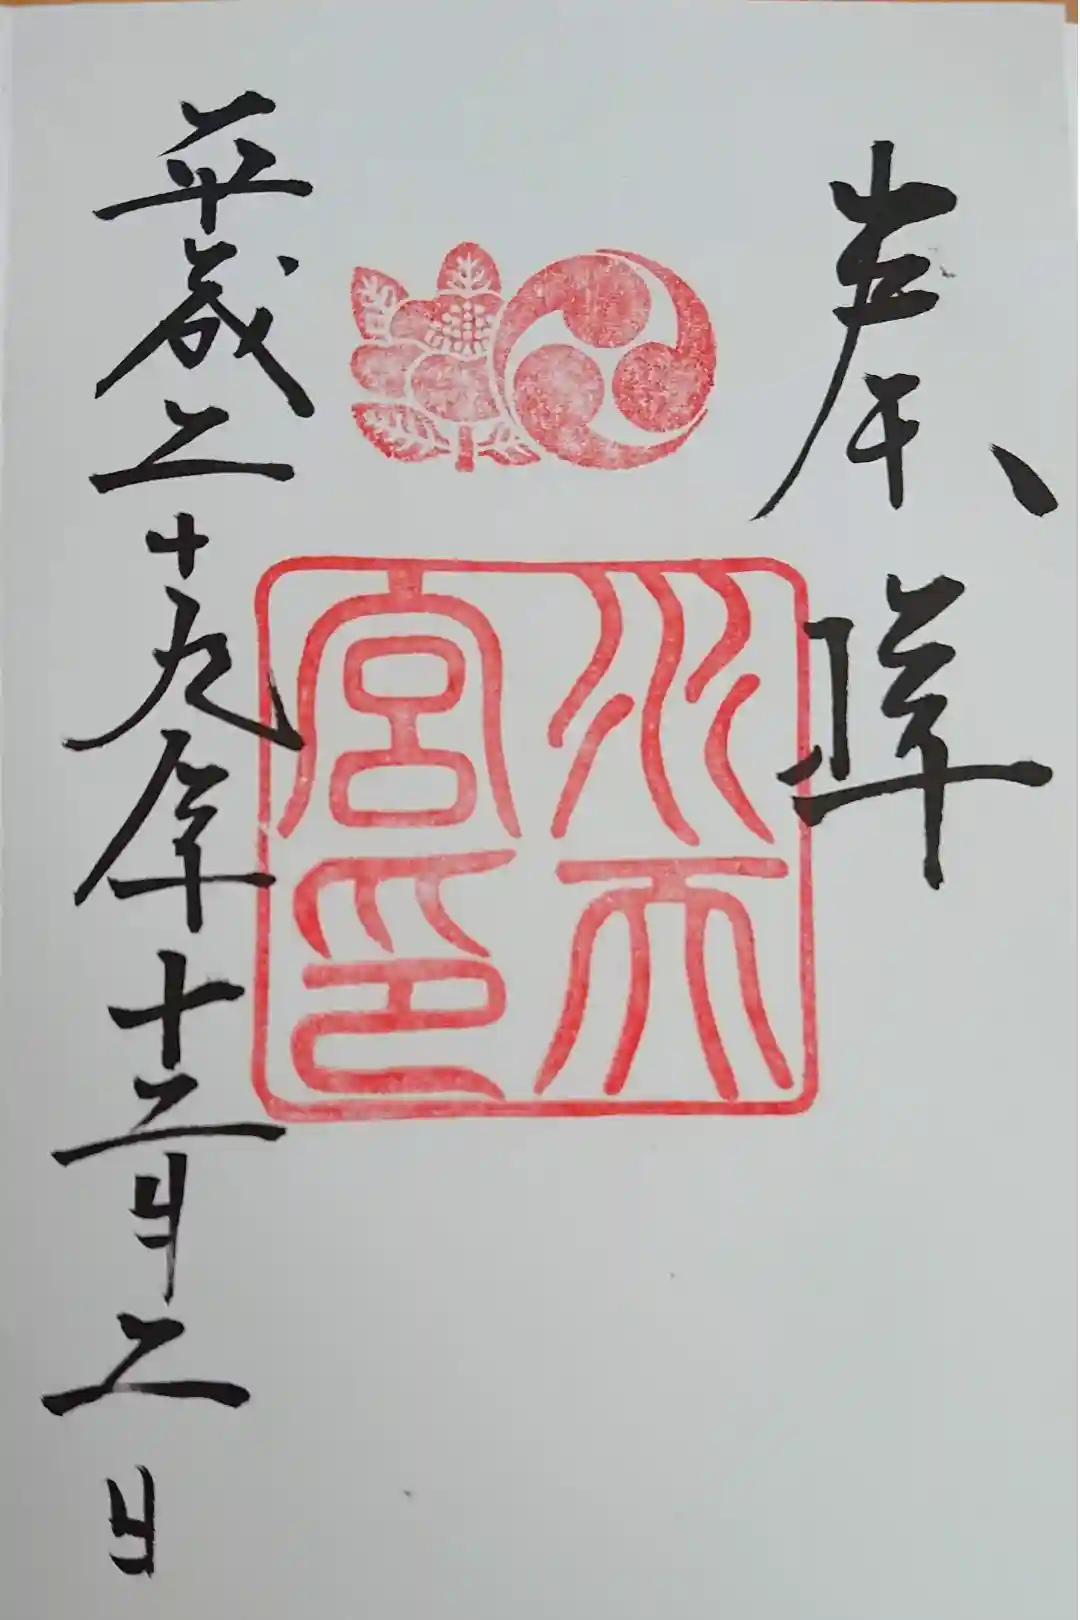 奉拝
水天宮印
平成二十九年十二月二日